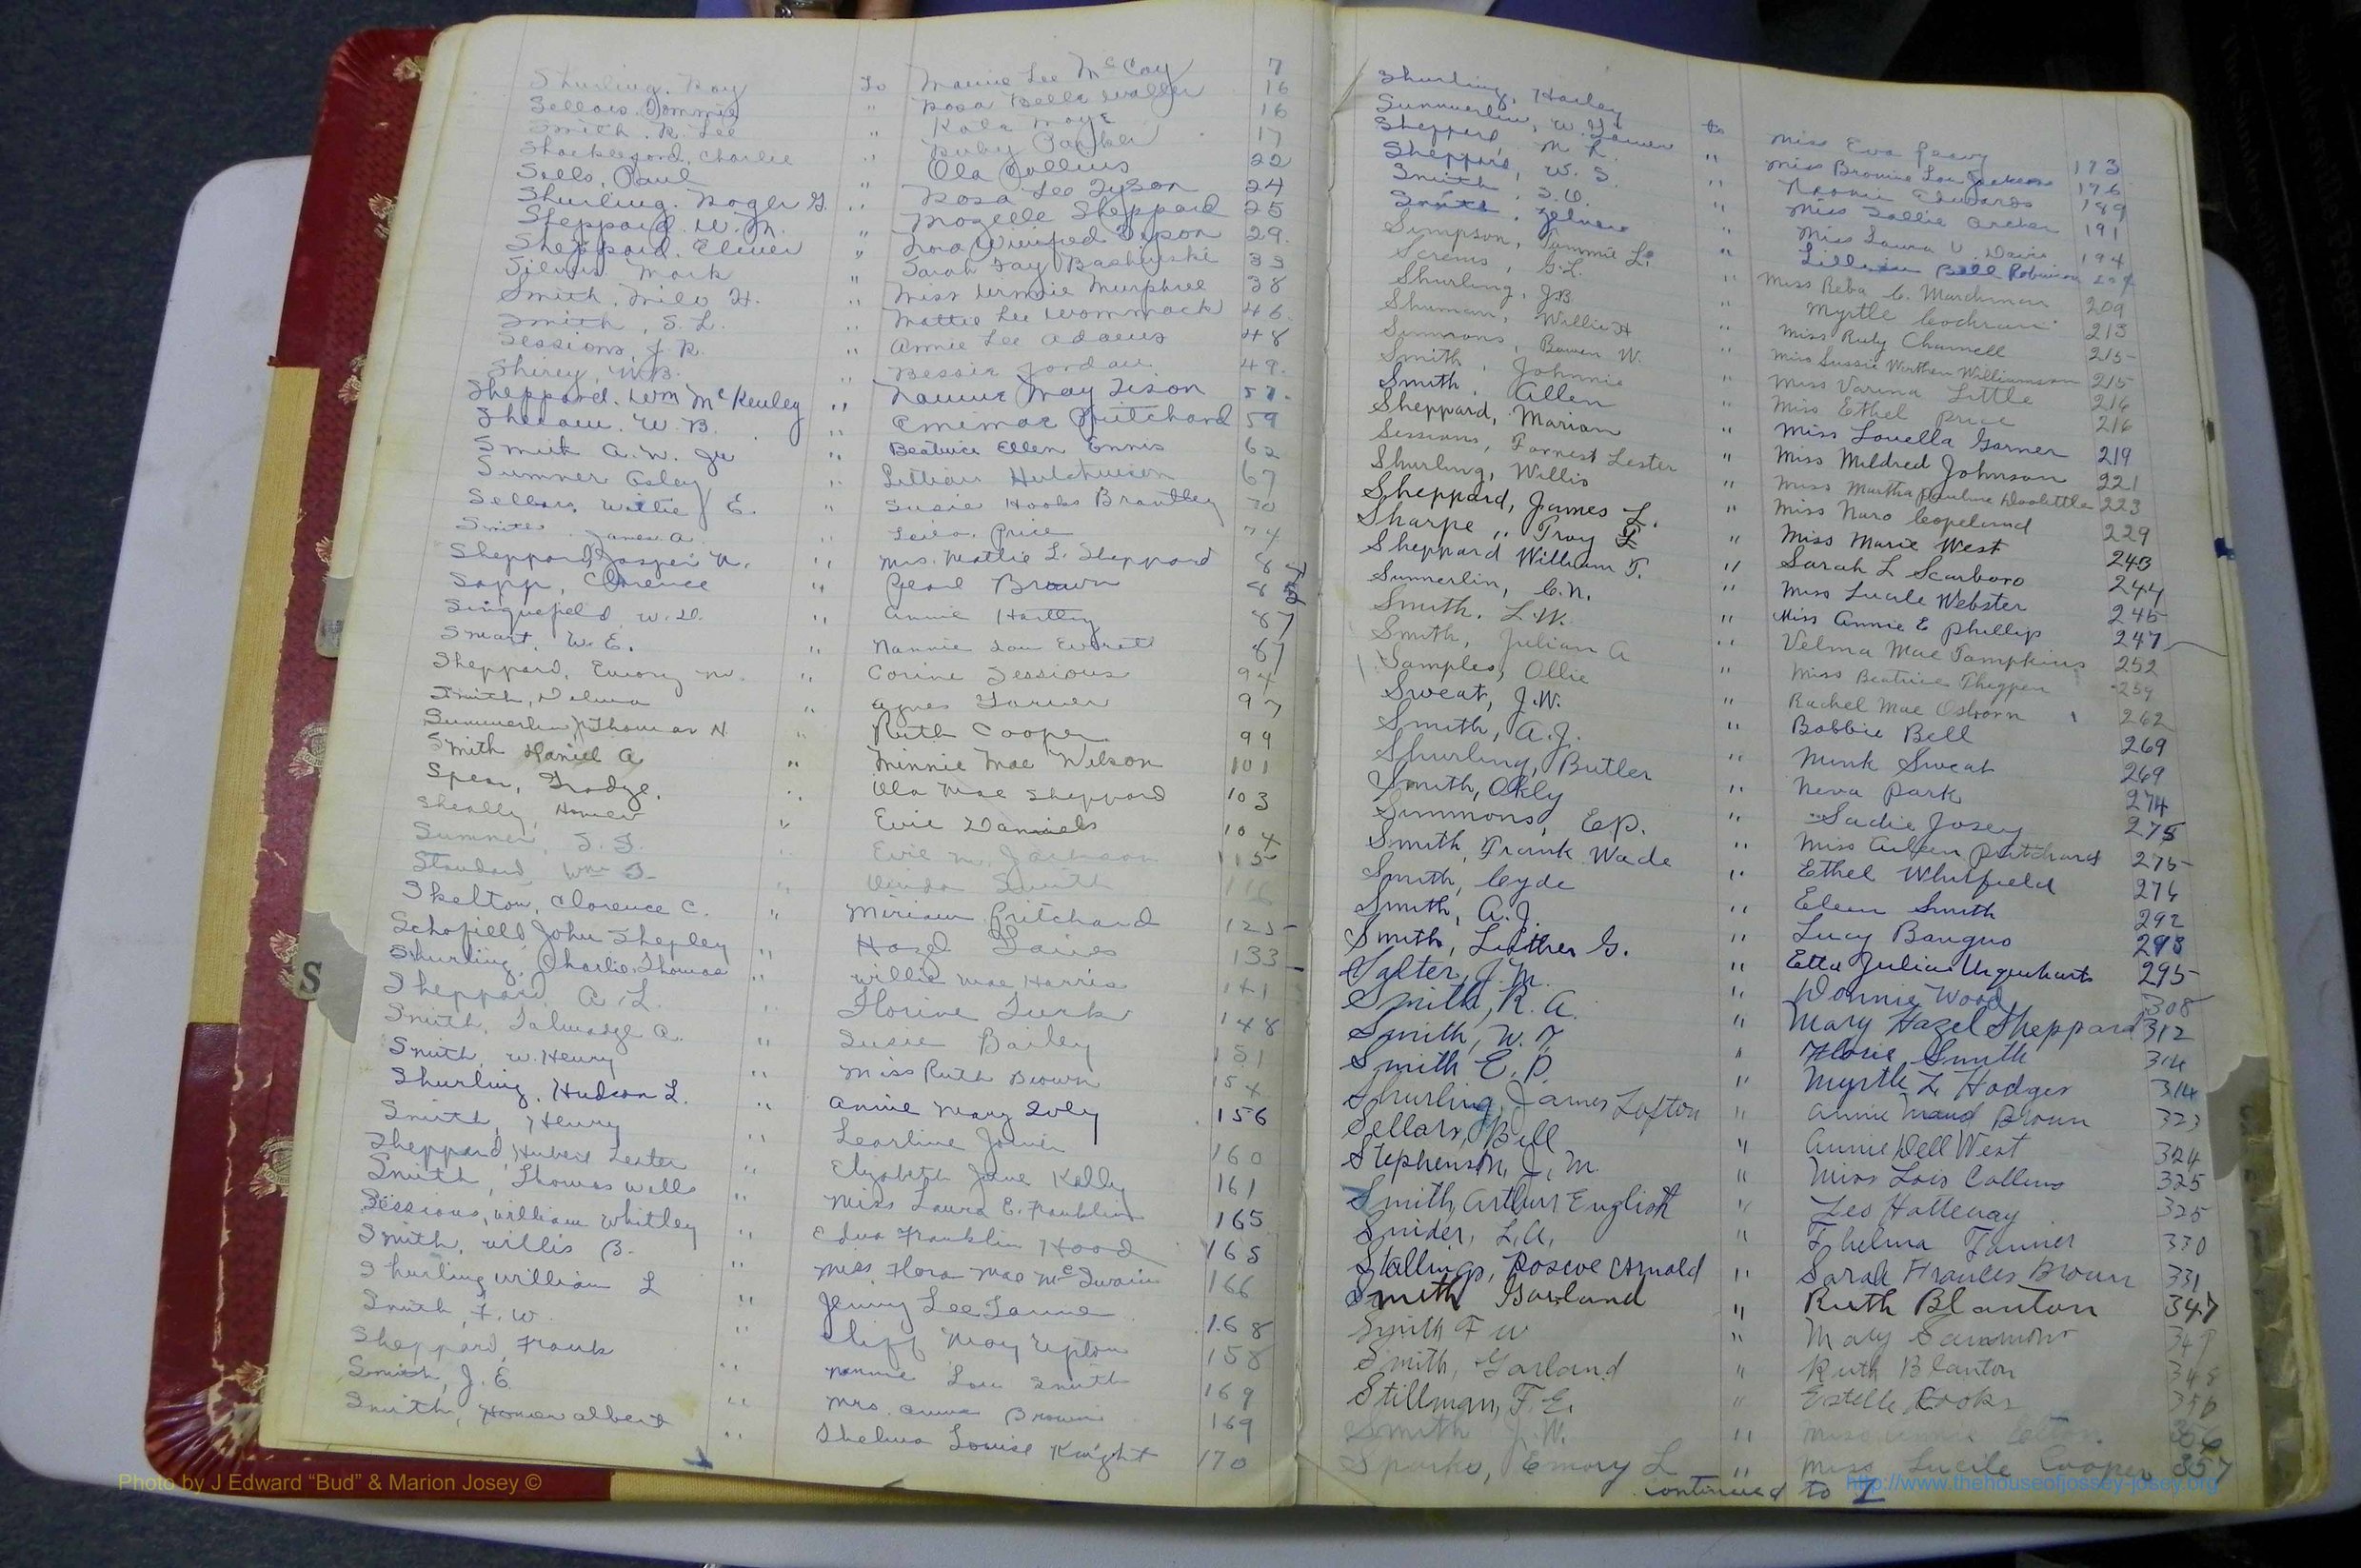 Shurling, Roy to Mamie Lee McCoy 7
Sellars, Tommie " Rosa Belle Waller 16
Smith, R. Lee " Kate Moye 16
Shackleford, Charlie " Ruby Parker 17
Sells, Paul " Ola Collins 22
Shurling, Roger G. " Rosa Lee Tyson 24
Sheppard, W. M. " Mozelle Sheppard 25
Sheppard, Elmer " Winifred 29
Mark " Sarah Fay Bashinski 33
Smith, Milo H. " Miss Murphree 38
Smith, S. L. " Mattie Lee Wommack 46
Sessions, J. R. " Annie Lee Adams 48
Shirey, W. B. " Bessie Jordan 49
Sheppard, Wm McKenley " May Tison 57
W. B. " Pritchard 59
Smith A. W. Jr " Beatrice Ellen Ennis 62
Sumner Osley " Lillian Hutchinson 67
Sellars, Willie E. " Susie Hooks Brantley 70
Smith, James A. " Leila Price 74
Sheppard, Jasper N. " Mrs. Mattie L. Sheppard
Sapp, Clarence " Pearl Brown
Singuefield, W. D. " Annie Hartley 87
Smart, W. E. " Nannie Lou Everett 87
Sheppard, Emory M. " Corine Sessions 94
Smith, Delma " Agnes 97
Summerlin, Thomas N. " Ruth Cooper 99
Smith Daniel A " Minnie Mae Wilson 101
Spear, " Ola Mae Sheppard 103
Sheally, Homer " Evie Daniels 104
Sumner, " Evie M. Jackson 115
Standard, Wm " Smith 116
Skelton, Clarence C. " Miriam Pritchard 125
Schofield, John Shepley " Hazel 133
Shurling, Charlie Thomas " Willie Mae Harris 141
Sheppard, A. L. " Florine Turk 148
Smith, Talmadge A. " Susie Bailey 151
Smith, W. Henry " Miss Ruth Brown 154
Shurling, Hudson L. " Annie Mary 156
Smith, Henry " Learline Joiner 160
Sheppard, Hubert Lester " Elizabeth Jane Kelly 161
Smith, Thomas Wells " Miss Laura E. Franklin 165
Sessions, William Whitley " Edna Franklin Hood 165
Smith, Willis B. " Miss Flora Mae McSwain 166
Shurling William L " Jenny Lee 168
Smith, F. W. " Cliff May Upton 158
Sheppard, Frank " Lou Smith 169
Smith, J. E. " Mrs. Anna Brown 169
Smith, Homer Albert " Thelma Louise Knight 170
Shurling, Harley to Miss Eva Peavy 173
Summerlin, W. " Miss Brownie Lou 176
Sheppard, M. R. " Edwards 189
Sheppard, W. S. " Miss Sallie Archer 191
Smith, S. D. " Miss Laura V. Davis 194
Smith, " Lillian Bell Robinson
Simpson, Tommie L. " Miss Reba C. Marchman 209
G. L. " Myrtle Cochran 213
Shurling, J. B. " Miss Ruby Channell 215
Shuman, Willie H " Miss Sussie Wirthen Williamson 215
Simmons, Bowen W. " Miss Varina Little 216
Smith, Johnnie " Miss Ethel Price 216
Smith, Allen " Miss Louella Garner 219
Sheppard, Marion " Miss Mildred Johnson 221
Sessions, Forrest Lester " Miss Martha Pauline Doolittle 223
Shurling, Willis " Miss Naro Copeland 229
Sheppard, James L. " Miss Marie West 243
Sharpe, Troy " Sarah L Scarboro 244
Sheppard William T. " Miss Lucile Webster 245
Sumerlin, C. N. " Miss Annie E Phillips 247
Smith, L. W. " Velma Mae Tompkins 252
Smith, Julian A " Miss Beatrice Thigpen 259
Samples, Ollie " Rachel Mae Osborn 262
Sweat, J. W. " Bobbie Bell 269
Smith, A. J. " Mink Sweat 269
Shurling, Butler " Neva Park 274
Smith, Okly " Sadie Josey 275
Simmons, E. P. " Miss Aileen Pritchard 275
Smith, Frank Wade " Ethel Whitfield 276
Smith, Clyde " Eleen Smith 292
Smith, A. J. " Lucy Banguo 293
Smith, Luther G. " Etta Julia Urquhart 295
Salter, J. M. " Donnie Wood 308
Smith, R. A. " Mary Hazel Sheppard 312
Smith, W. T. " Florie Smith 314
Smith E. P. " Myrtle L Hodges 314
Shurling, James Lofton " Annie Maud Brown 323
Sellars, Bill " Annie Dell West 324
Stephenson, J. M. " Miss Lois Collins 325
Smith, Arthur English " Leo Hattenay 325
Snider, L. A. " Thelma Tanner 330
Stallings, Roscoe Arnold " Sarah Frances Brown 331
Smith Garland " Ruth Blanton 347
Smith F W " Mary Sammons
Smith, Garland " Ruth Blanton
Stillman, F. E. " Estelle Rooks 356
Smith J. W. " Miss 356
Sparks, Emory L " Miss Lucile Cooper 357
continued to I
S
Photo by J Edward “Bud” & Marion Josey ©
http://www.thehouseofjossey-josey.org